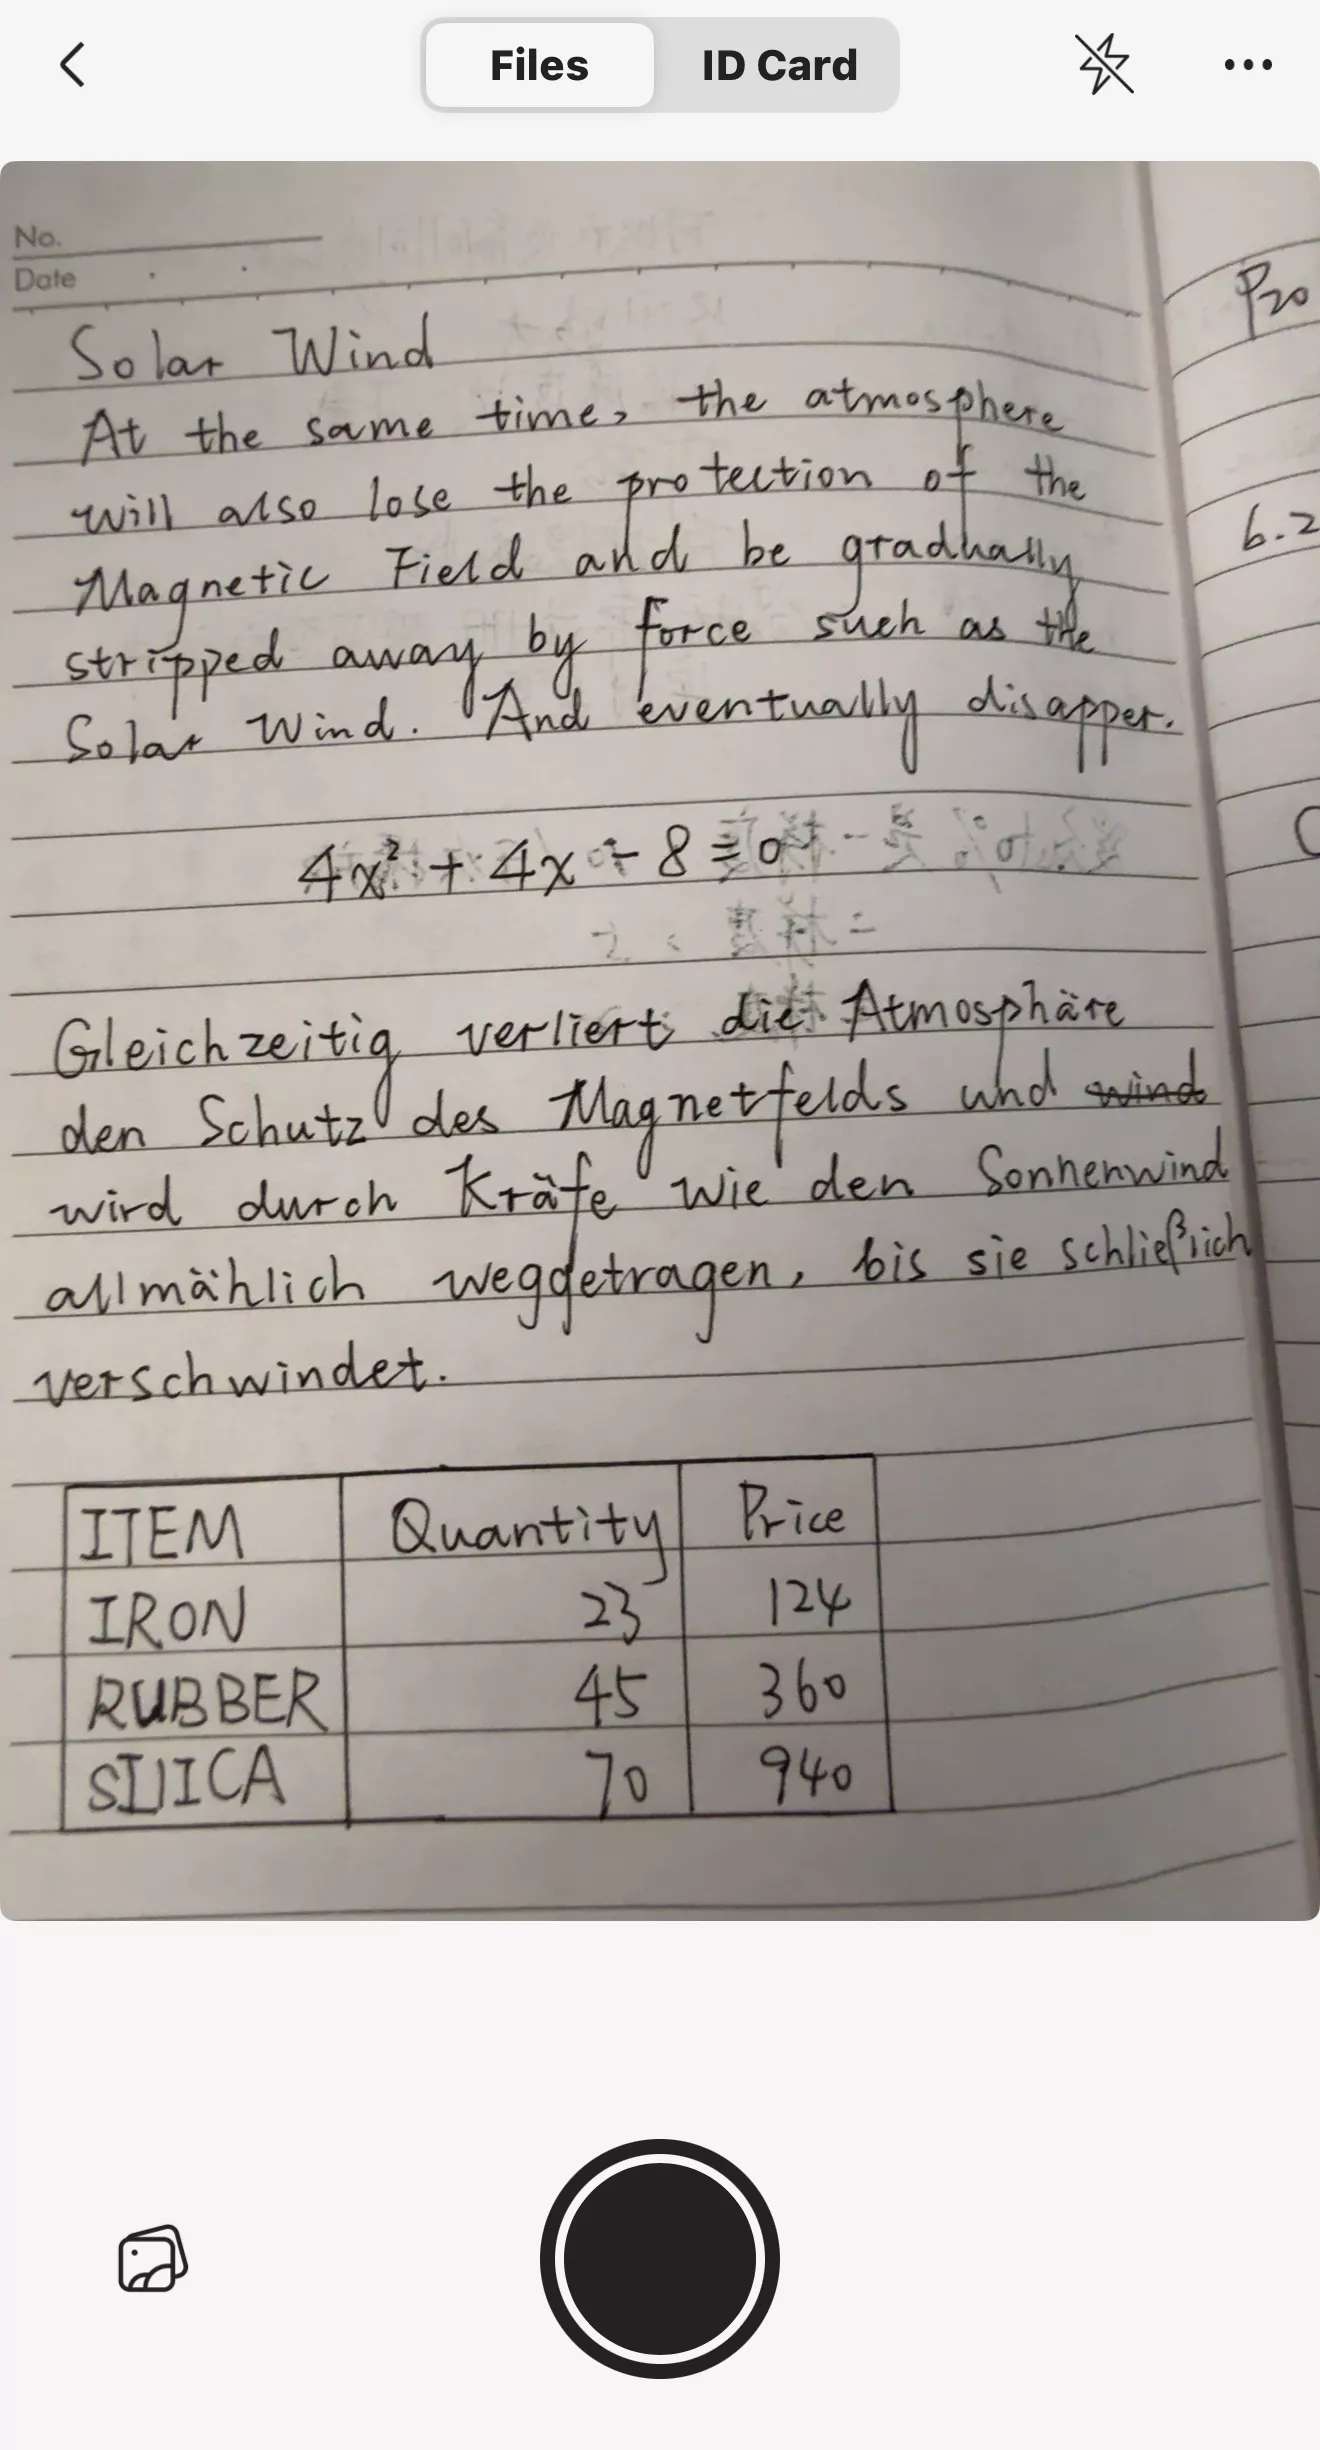 Files ID Card
No.
Date
P20
Solar Wind
At the same time, the atmosphere
will also lose the protection of the
6.2
Magnetic Field and be gradhally
stripped away by force such as the
Solar Wind. And eventually disapper.
4x² + 4x - 8 = 0
Gleichzeitig verliert die Atmosphäre
den Schutz des Magnetfelds und wind
wird durch Kräfe wie den Sonnenwind
allmählich weggetragen, bis sie schließlich
verschwindet.
ITEM Quantity Price
IRON 23 124
RUBBER 45 360
SILICA 70 940